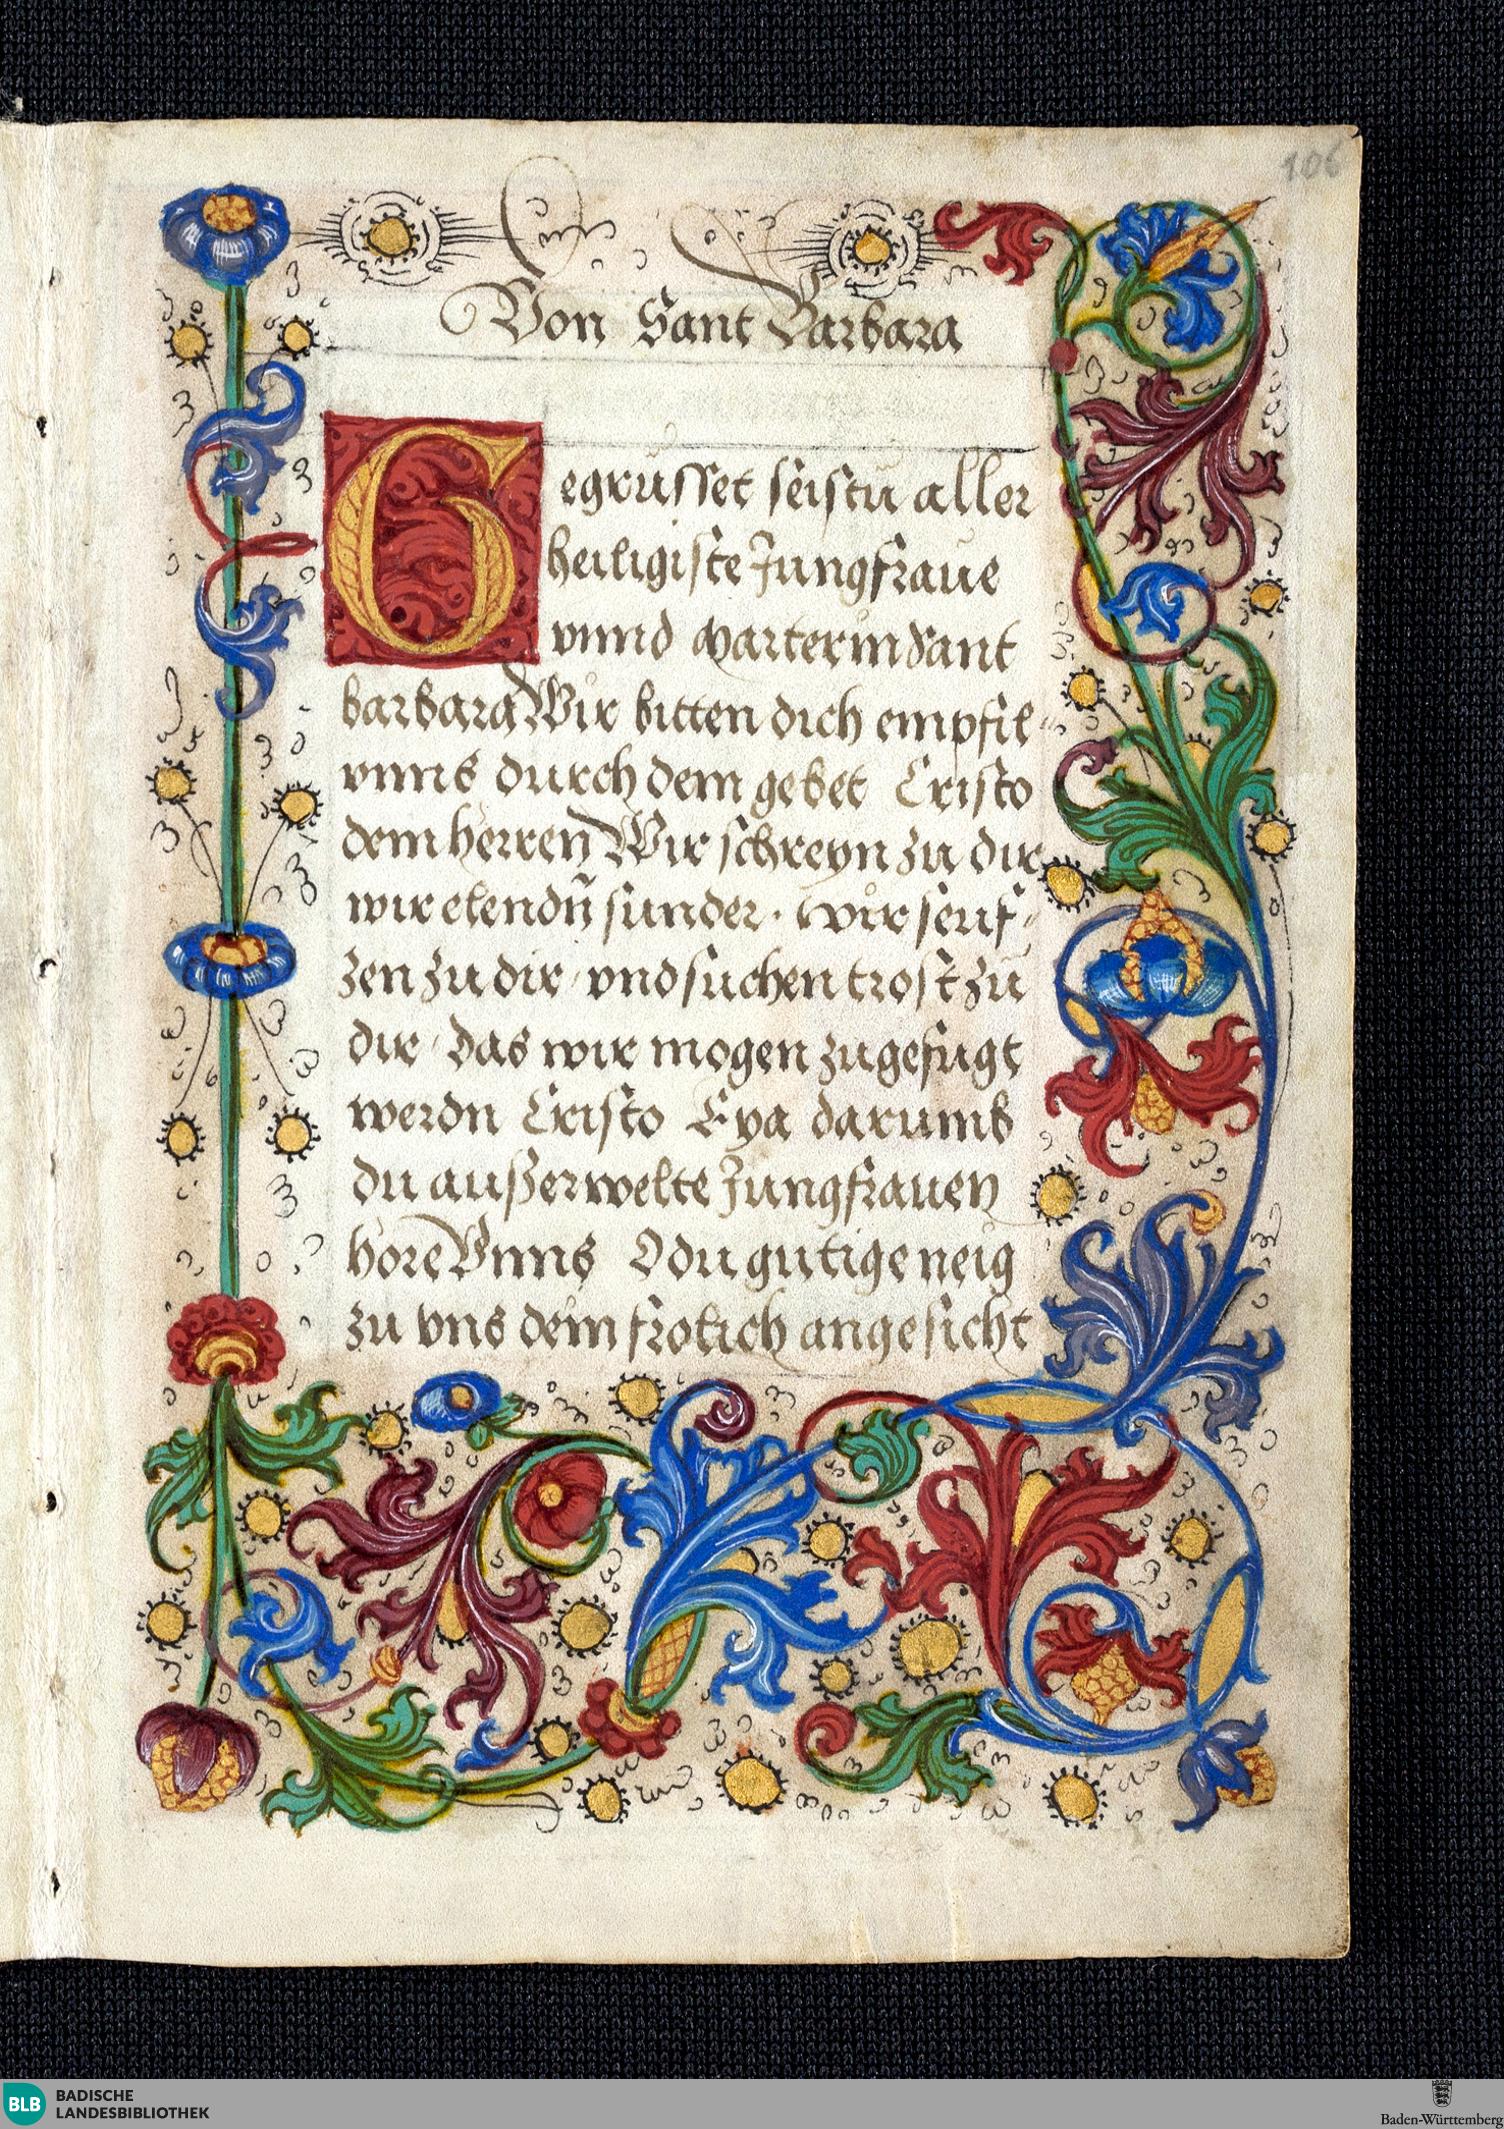 106
Von Sant Barbara
Gegrüsset seistu aller
heiligiste Jungfraue
vnnd Marterin Sant
barbara Wir bitten dich empfil
vnns durch dem gebet Cristo
dem herren Wir schreyn zu dir
wir elendn̄ sunder · wir seuf-
zen zu dir vnd suchen trost zu
dir das wir mogen zugefugt
werdn Cristo Eya darumb
du außerwelte Jungfrauen
hore Vnns O du gutige neig
zu vns dein frolich angesicht
BLB BADISCHE
LANDESBIBLIOTHEK
Baden-Württemberg